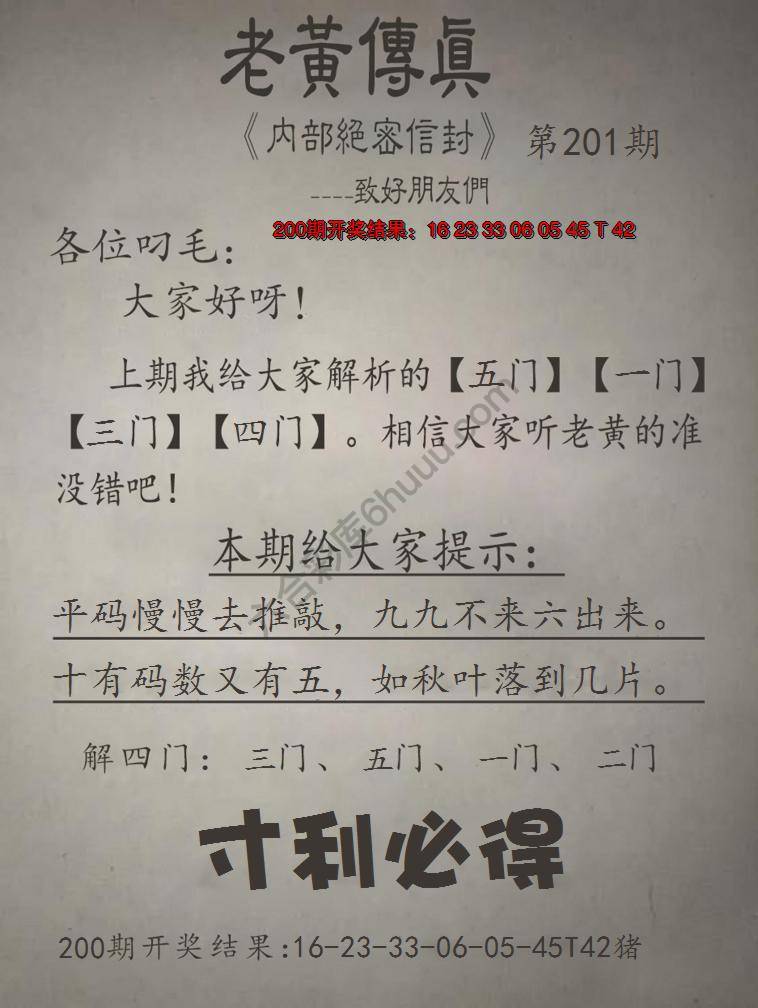 老黃傳眞
《内部絕密信封》 第201期
----致好朋友們
200期开奖结果：16 23 33 06 05 45 T 42
各位叼毛：
大家好呀！
上期我给大家解析的【五门】【一门】
【三门】【四门】。相信大家听老黄的准
没错吧！
本期给大家提示：
平码慢慢去推敲，九九不来六出来。
十有码数又有五，如秋叶落到几片。
解四门：三门、五门、一门、二门
寸利必得
200期开奖结果:16-23-33-06-05-45T42猪
六合彩库6huuu.com